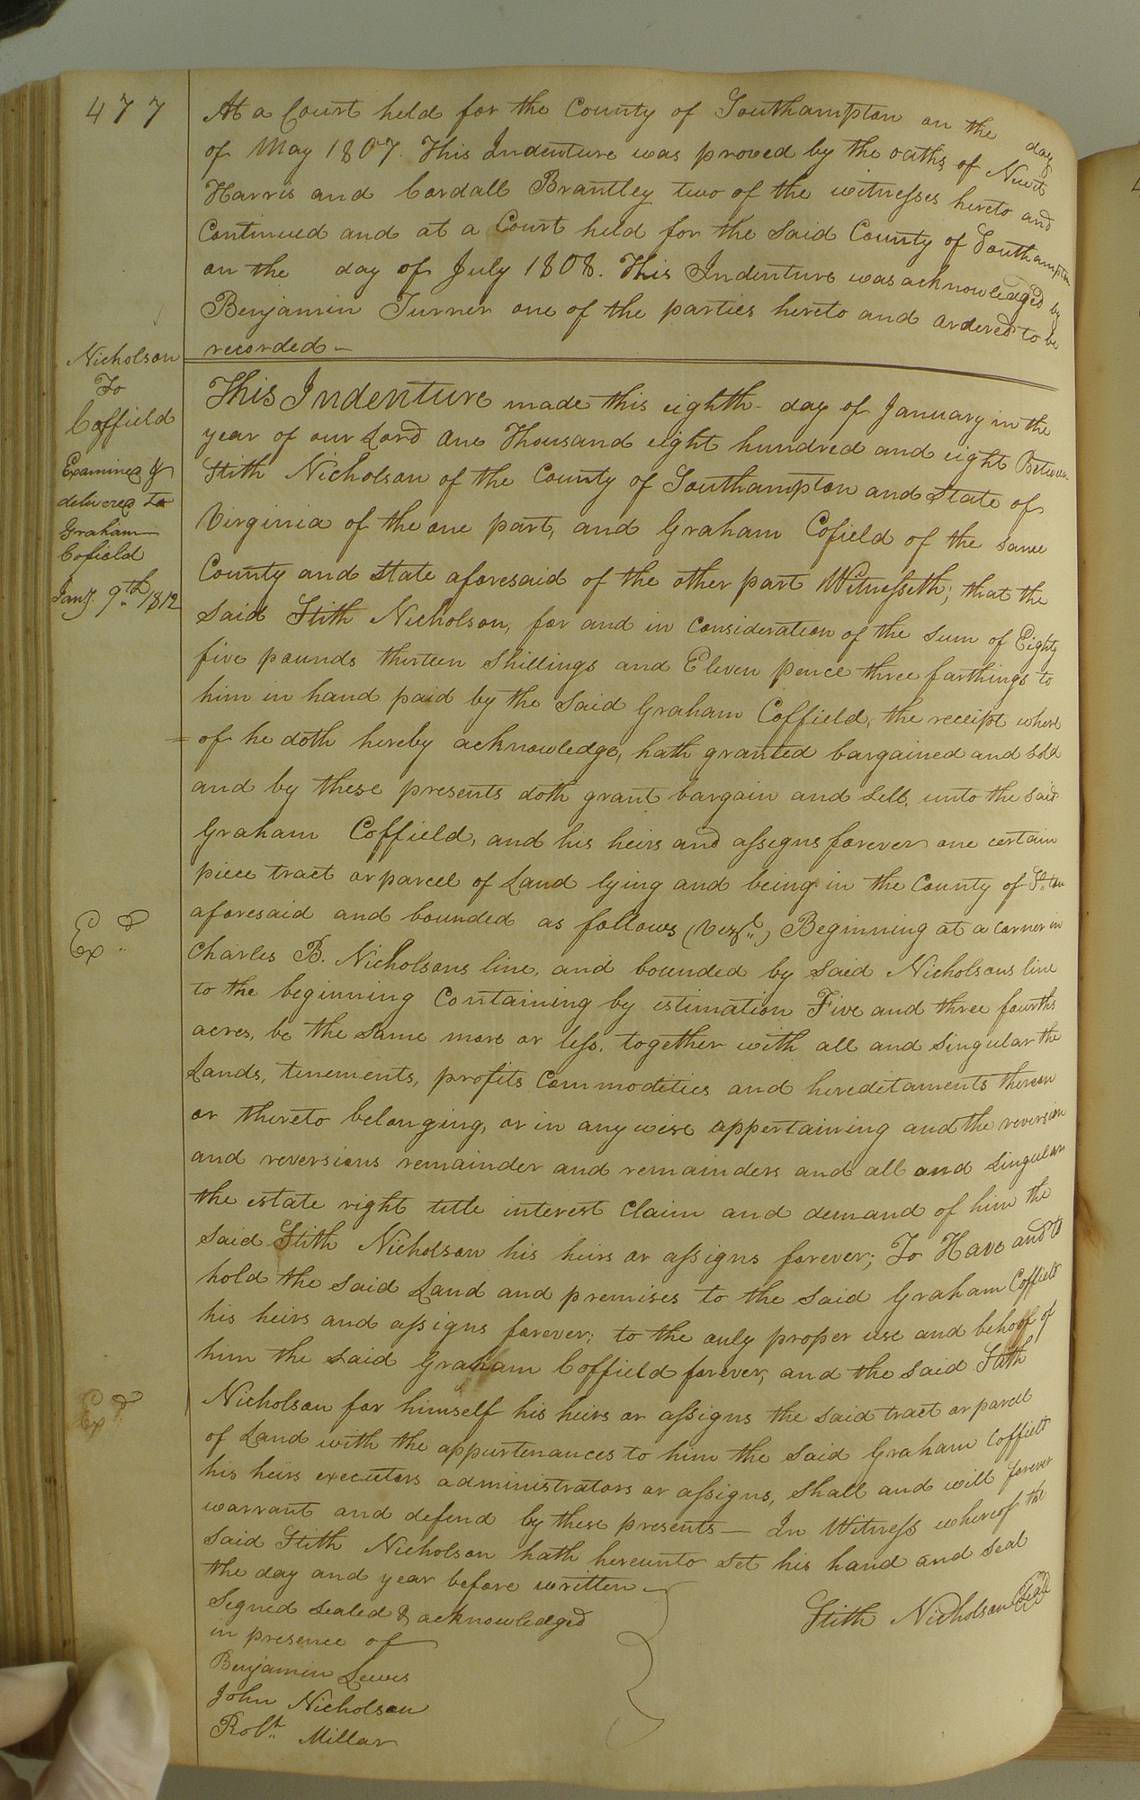 477
At a Court held for the County of Southampton on the day
of May 1807. This Indenture was proved by the oaths of Newt
Harris and Cordall Brantley two of the witnesses hereto and
Continued and at a Court held for the said County of Southampton
on the day of July 1808. This Indenture was acknowledged by
Benjamin Turner one of the parties hereto and ordered to be
recorded —
Nicholson
To
Coffield
Examined &
delivered to
Graham
Cofield
Jany. 9th 1812
This Indenture made this eighth day of January in the
year of our Lord One Thousand eight hundred and eight Between
Stith Nicholson of the County of Southampton and State of
Virginia of the one part, and Graham Cofield of the same
County and State aforesaid of the other part Witnesseth; that the
said Stith Nicholson, for and in consideration of the sum of Eighty
five pounds thirteen shillings and Eleven pence three farthings to
him in hand paid by the said Graham Coffield, the receipt where
= of he doth hereby acknowledge, hath granted bargained and sold
and by these presents doth grant bargain and sell, unto the said
Graham Coffield, and his heirs and assigns forever one certain
piece tract or parcel of Land lying and being in the County of S°.ton
aforesaid and bounded as follows (Vizt.) Beginning at a corner in
Exd.
Charles B. Nicholsons line, and bounded by said Nicholsons line
to the beginning Containing by estimation Five and three fourths
acres, be the same more or less, together with all and singular the
Lands, tenements, profits Commodities and hereditaments thereon
or thereto belonging, or in any wise appertaining and the reversion
and reversions remainder and remainders and all and singular
the estate right title interest claim and demand of him the
said Stith Nicholson his heirs or assigns forever; To Have and to
hold the said Land and premises to the said Graham Coffield
his heirs and assigns forever; to the only proper use and behoof of
him the said Graham Coffield forever, and the said Stith
Exd.
Nicholson for himself his heirs or assigns the said tract or parcel
of Land with the appurtenances to him the said Graham Coffield
his heirs executors administrators or assigns, shall and will forever
warrant and defend by these presents — In Witness whereof the
said Stith Nicholson hath hereunto set his hand and seal
the day and year before written —
Signed sealed & acknowledged
in presence of
Stith Nicholson Seal
Benjamin Lewis
John Nicholson
Robt. Millar